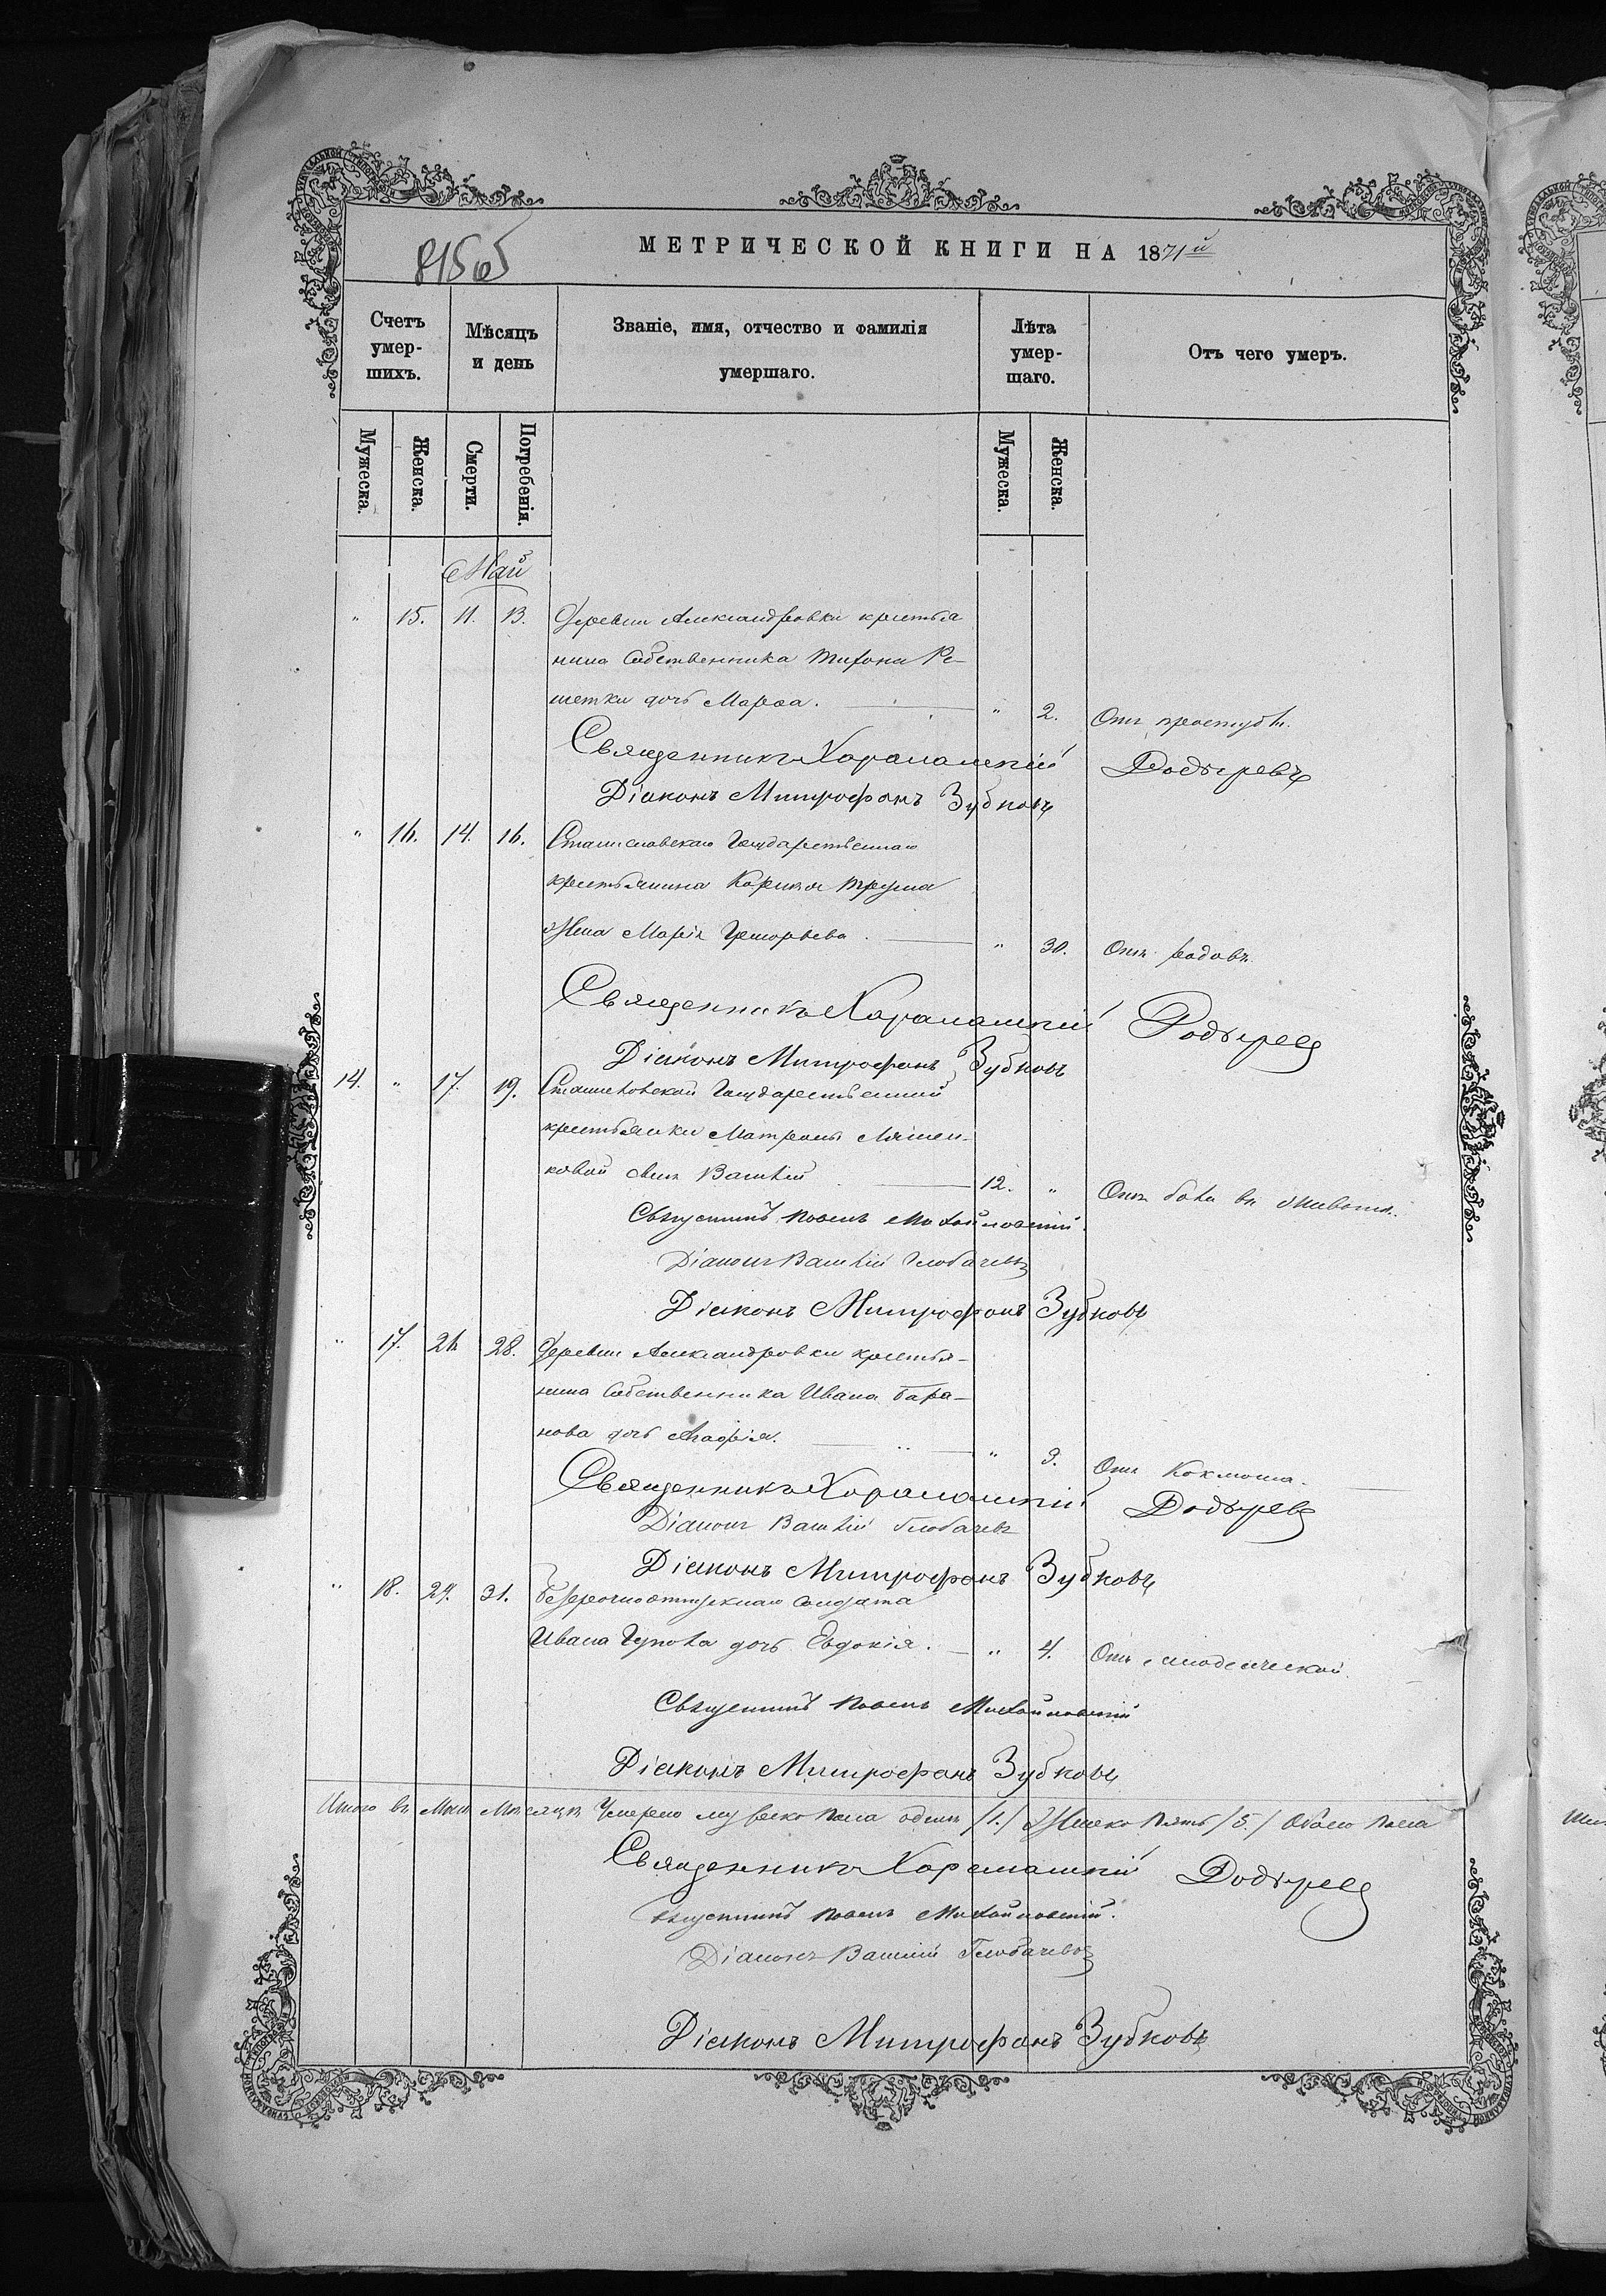 МЕТРИЧЕСКОЙ КНИГИ НА 1871й
Счетъ умер-шихъ.
Мѣсяцъ и день
Званіе, имя, отчество и фамилія умершаго.
Лѣта умер-шаго.
Отъ чего умеръ.
Мужеска. Женска. Смерти. Погребенія. Мужеска. Женска.
Май
" 15. 11. 13. Деревни Александровки крестья
нина Собственника Тихона Ре-
шетки дочь Марѳа. " 2. Отъ простуды.
Священникъ Харалампій Додыревъ
Діаконъ Митрофанъ Зубковъ
" 16. 14. 16. Станиславскаго Государственнаго
крестьянина Карпа
жена Марія Григорьева " 30. Отъ родовъ
Священникъ Харалампій Додыревъ
Діаконъ Митрофанъ Зубковъ
14. " 17. 19. Государственной
крестьянки Матроны Ляшен-
ковой сынъ Василій 12. " Отъ боли въ животѣ.
Священникъ Павелъ Михайловскій.
Діаконъ Василій Глобачевъ
Діаконъ Митрофанъ Зубковъ
" 17. 26 28. Деревни Александровки крестья-
нина Собственника Ивана Бара-
нова дочь " 3. Отъ Коклюша.
Священникъ Харалампій Додыревъ
Діаконъ Василій Глобачевъ
Діаконъ Митрофанъ Зубковъ
" 18. 29. 31. Безсрочноотпускнаго солдата
Ивана дочь Евдокія. " 4. Отъ младенческой.
Священникъ Павелъ Михайловскій
Діаконъ Митрофанъ Зубковъ
Итого въ Маѣ Мѣсяцѣ Умерло мужеско Пола одинъ /1./ Женско Пять /5./ Обоего Пола
Священникъ Харалампій Додыревъ
Священникъ Павелъ Михайловскій.
Діаконъ Василій Глобачевъ
Діаконъ Митрофанъ Зубковъ